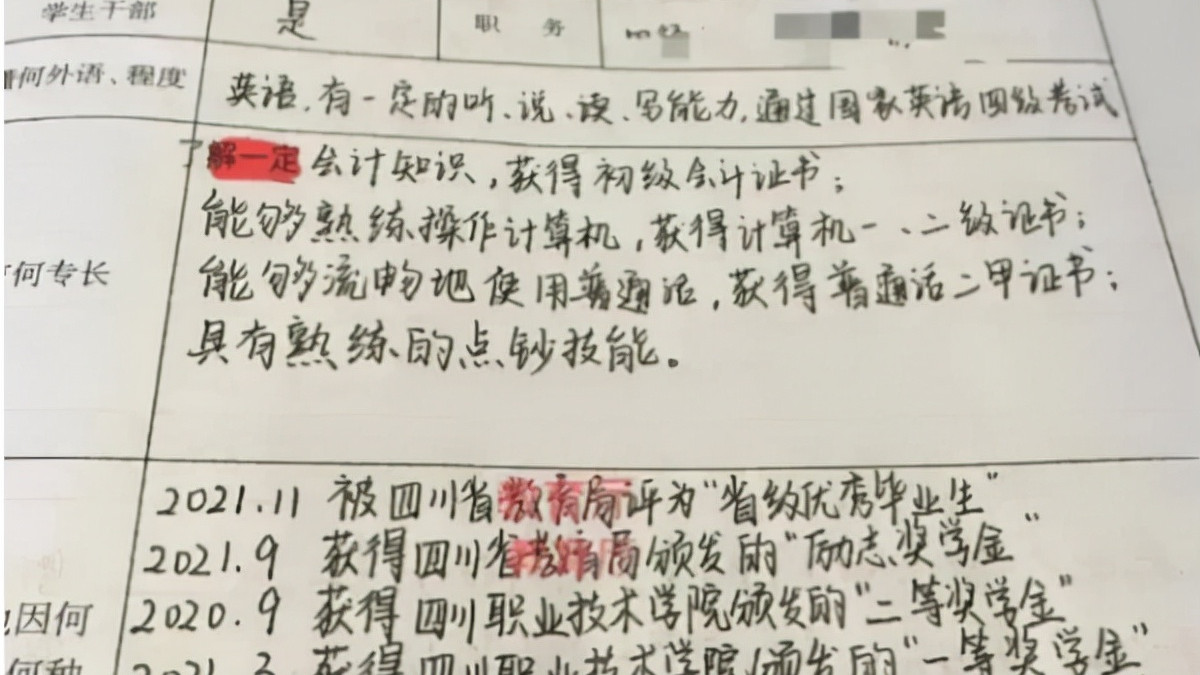 学生干部 是 职 务
何外语、程度 英语,有一定的听、说、读、写能力,通过国家英语四级考试
了解一定会计知识,获得初级会计证书;
能够熟练操作计算机,获得计算机一、二级证书;
何专长 能够流畅地使用普通话,获得普通话二甲证书;
具有熟练的点钞技能。
2021.11 被四川省教育局评为"省级优秀毕业生"
2021.9 获得四川省教育局颁发的"励志奖学金"
因何 2020.9 获得四川职业技术学院颁发的"二等奖学金"
何种 2021.3 获得四川职业技术学院颁发的"一等奖学金"